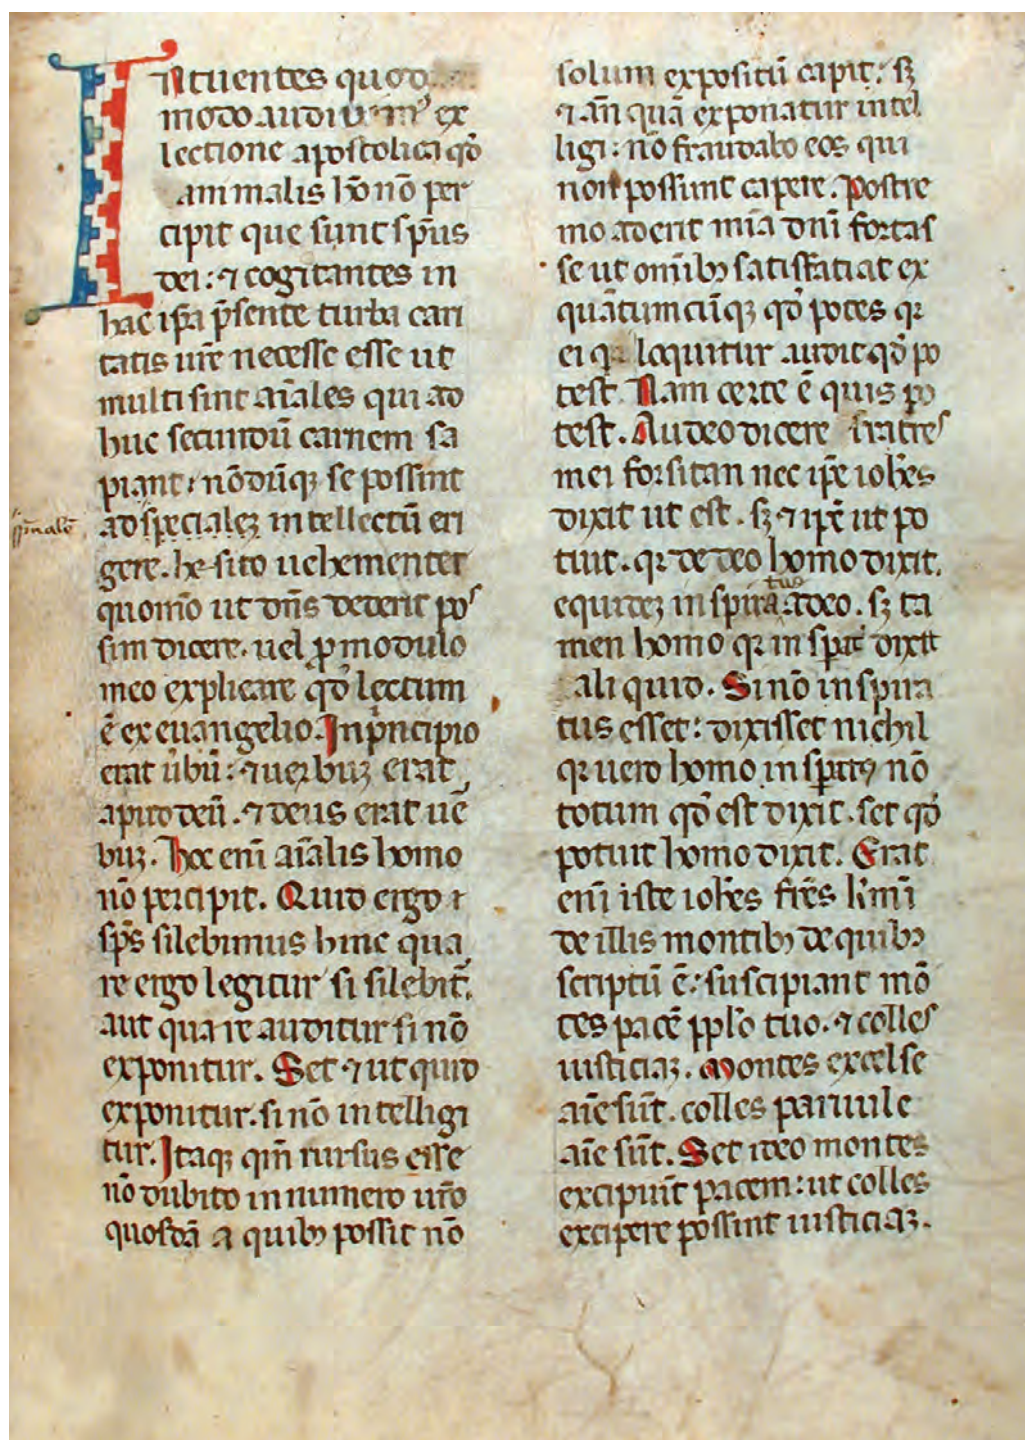 INtuentes quod
modo audiuimꝰ ex
lectione apostolica qđ
animalis hō nō per
cipit que sunt sp̄us
dei: ⁊ cogitantes in
hac ip̄a p̄sente turba cari
tatis ur̄e necesse esse ut
multi sint aīales qui ad
huc secundū carnem sa
piant: nōdūqꝫ se possint
ad sp̄ecialeꝫ intellectū eri
gere. he sito uehementer
quomō ut dn̄s dederit pos
sim dicere. uel ꝑ modulo
meo explicare qđ lectum
ē ex euangelio. In pͥncipio
erat úbū: ⁊ uerbuꝫ erat
aput deū. ⁊ deus erat ue
buꝫ. hoc enī aīalis homo
nō percipit. Quid ergo r̄
sp̄s silebimus hinc qua
re ergo legitur si silebit̄.
aut quare auditur si nō
exponitur. Set ⁊ ut quid
exponitur. si nō intelligi
tur. Itaqꝫ qm̄ rursus esse
nō dubito in numero ur̄o
quosdā a quibꝫ possit nō
sp̄inalē
solum expositū capi: sꝫ
⁊ an̄ quā exponatur intel
ligi: nō fraudabo eos qui
non possunt capere. Postre
mo aderit mīa dn̄i fortas
se ut omībꝫ satisfatiat ex
quātumcūqꝫ qđ potes qr
ei loquitur audit qđ po
test. Nam certe ē quis po
test. Audeo dicere fratres
mei forsitan nec ip̄e ioh̄es
dixit ut est. sꝫ ⁊ ip̄e ut po
tuit. qr de deo homo dixit.
equideꝫ inspiratus a deo. sꝫ ta
men homo qr inspirat̄ dixit
aliquid. Si nō inspira
tus esset: dixisset nichil
qr uero homo inspirat̄ꝰ nō
totum qđ est dixit. set qđ
potuit homo dixit. Erat
enī iste ioh̄es fr̄es k̄mi
de illis montibꝫ de quibꝫ
scriptū ē: suscipiant mō
tes pacē pp̄lo tuo. ⁊ colles
iusticiaꝫ. Montes excelse
aīe sūt. colles paruule
aīe sūt. Set ideo montes
excipiūt pacem: ut colles
excipere possint iusticiaꝫ.